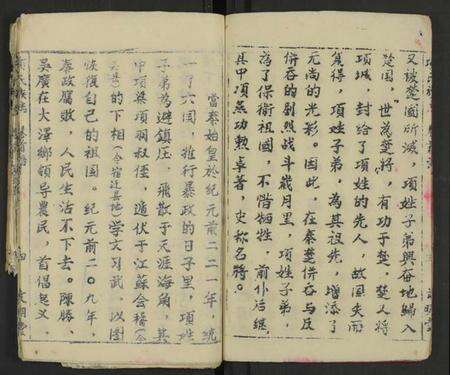 又被楚國所滅，項姓子弟興奮地歸入
楚国，世為楚将，有功于楚，楚人将
項城，封给了項姓的先人，故国失而
復得，項姓子弟，為其祖先，增添了
无尚的光彩。因此，在秦楚併吞与反
併吞的剧烈战斗歲月里，項姓子弟，
為了保衛祖國，不惜牺牲，前仆后継，
其中項燕功勲卓著，史称名将。
當秦始皇於紀元前二二一年，統
一了六国，推行暴政的日子里，項姓
子弟為避鎮压，飛散于天涯海角，其
中項梁項羽叔侄，遁伏于江蘇会稽
的下相（今宿迁县地）学文习武，以图
恢復自己的祖国。纪元前二〇九年，
秦政腐敗，人民生活不下去。陳勝、
吴廣在大澤鄉領导農民，首倡起义，